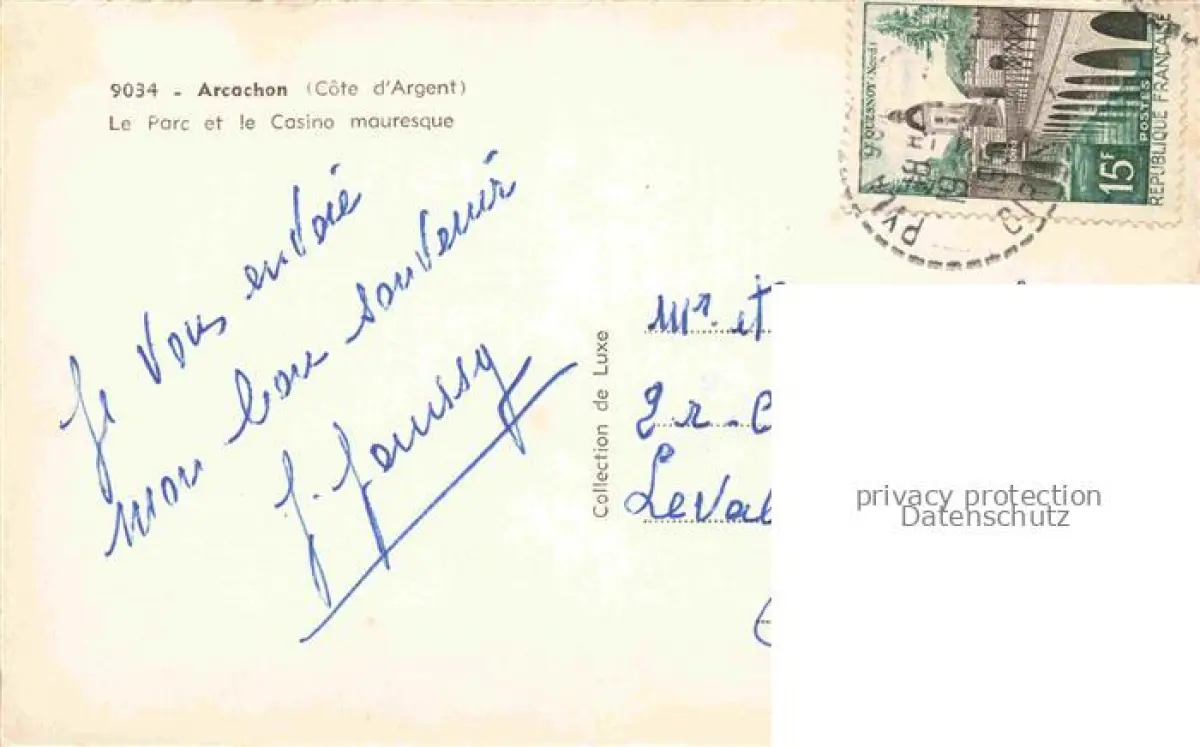 9034 - Arcachon (Côte d'Argent)
Le Parc et le Casino mauresque
Je vous envoie
mon bon souvenir
Collection de Luxe
Mr. et
2 r - C
Leval
privacy protection
Datenschutz
LE QUESNOY (Nord)
15F
POSTES
REPUBLIQUE FRANÇAISE